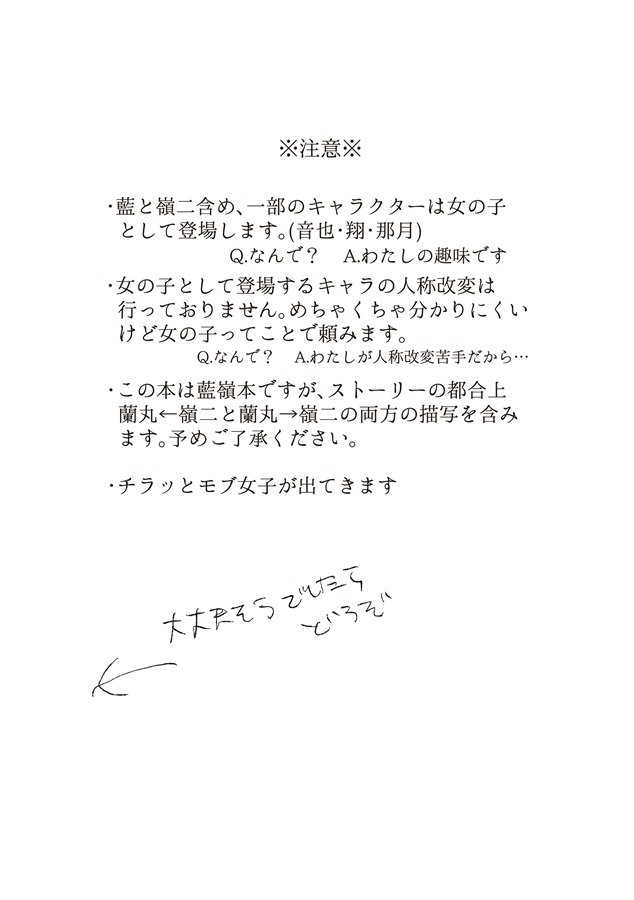 ※注意※
・藍と嶺二含め、一部のキャラクターは女の子
として登場します。(音也・翔・那月)
Q.なんで？　A.わたしの趣味です
・女の子として登場するキャラの人称改変は
行っておりません。めちゃくちゃ分かりにくい
けど女の子ってことで頼みます。
Q.なんで？　A.わたしが人称改変苦手だから…
・この本は藍嶺本ですが、ストーリーの都合上
蘭丸←嶺二と蘭丸→嶺二の両方の描写を含み
ます。予めご了承ください。
・チラッとモブ女子が出てきます
大丈夫そうでしたら
どうぞ